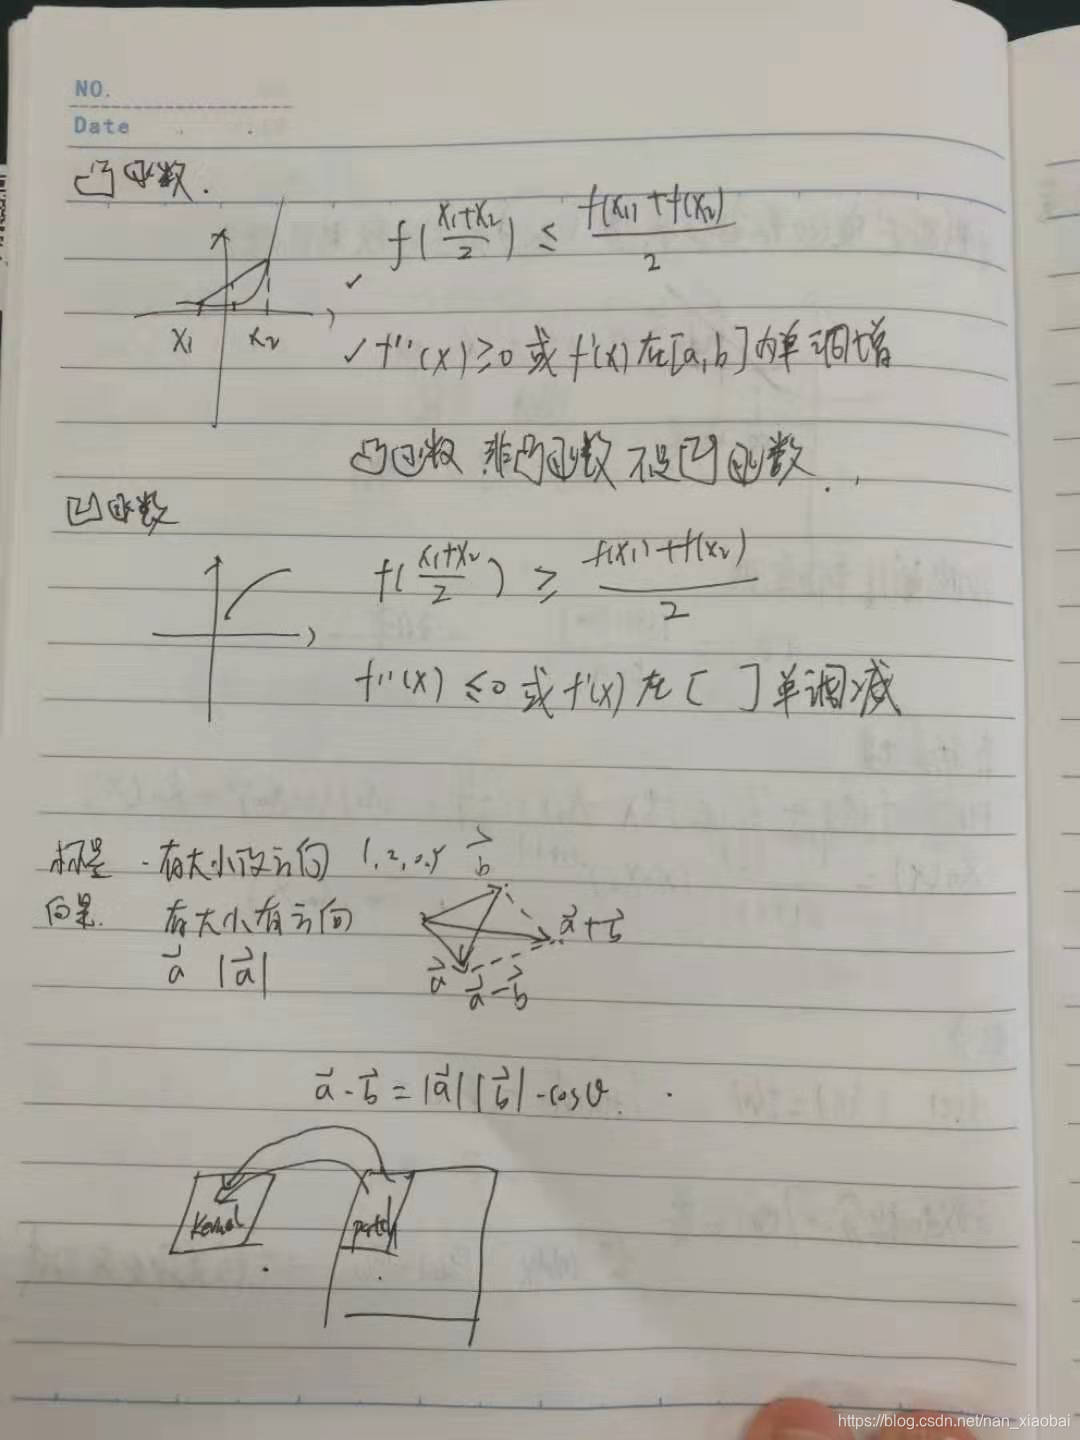 NO.
Date
凸函数.
f(\frac{x₁+x₂}{2}) ≤ \frac{f(x₁)+f(x₂)}{2}
x₁ x₂
✓
✓ f''(x) ≥ 0 或 f'(x) 在[a,b]内单调增
凸函数 非凸函数 不是凹函数.
凹函数
f(\frac{x₁+x₂}{2}) ≥ \frac{f(x₁)+f(x₂)}{2}
f''(x) ≤ 0 或 f'(x) 在[ ]单调减
标量 · 有大小没方向 1, 2, 0.5
向量. 有大小有方向
\vec{a} |\vec{a}|
\vec{b}
\vec{a}+\vec{b}
\vec{a} \vec{a}-\vec{b}
\vec{a}·\vec{b} = |\vec{a}||\vec{b}|·cosθ.
kernel patch
https://blog.csdn.net/nan_xiaobai